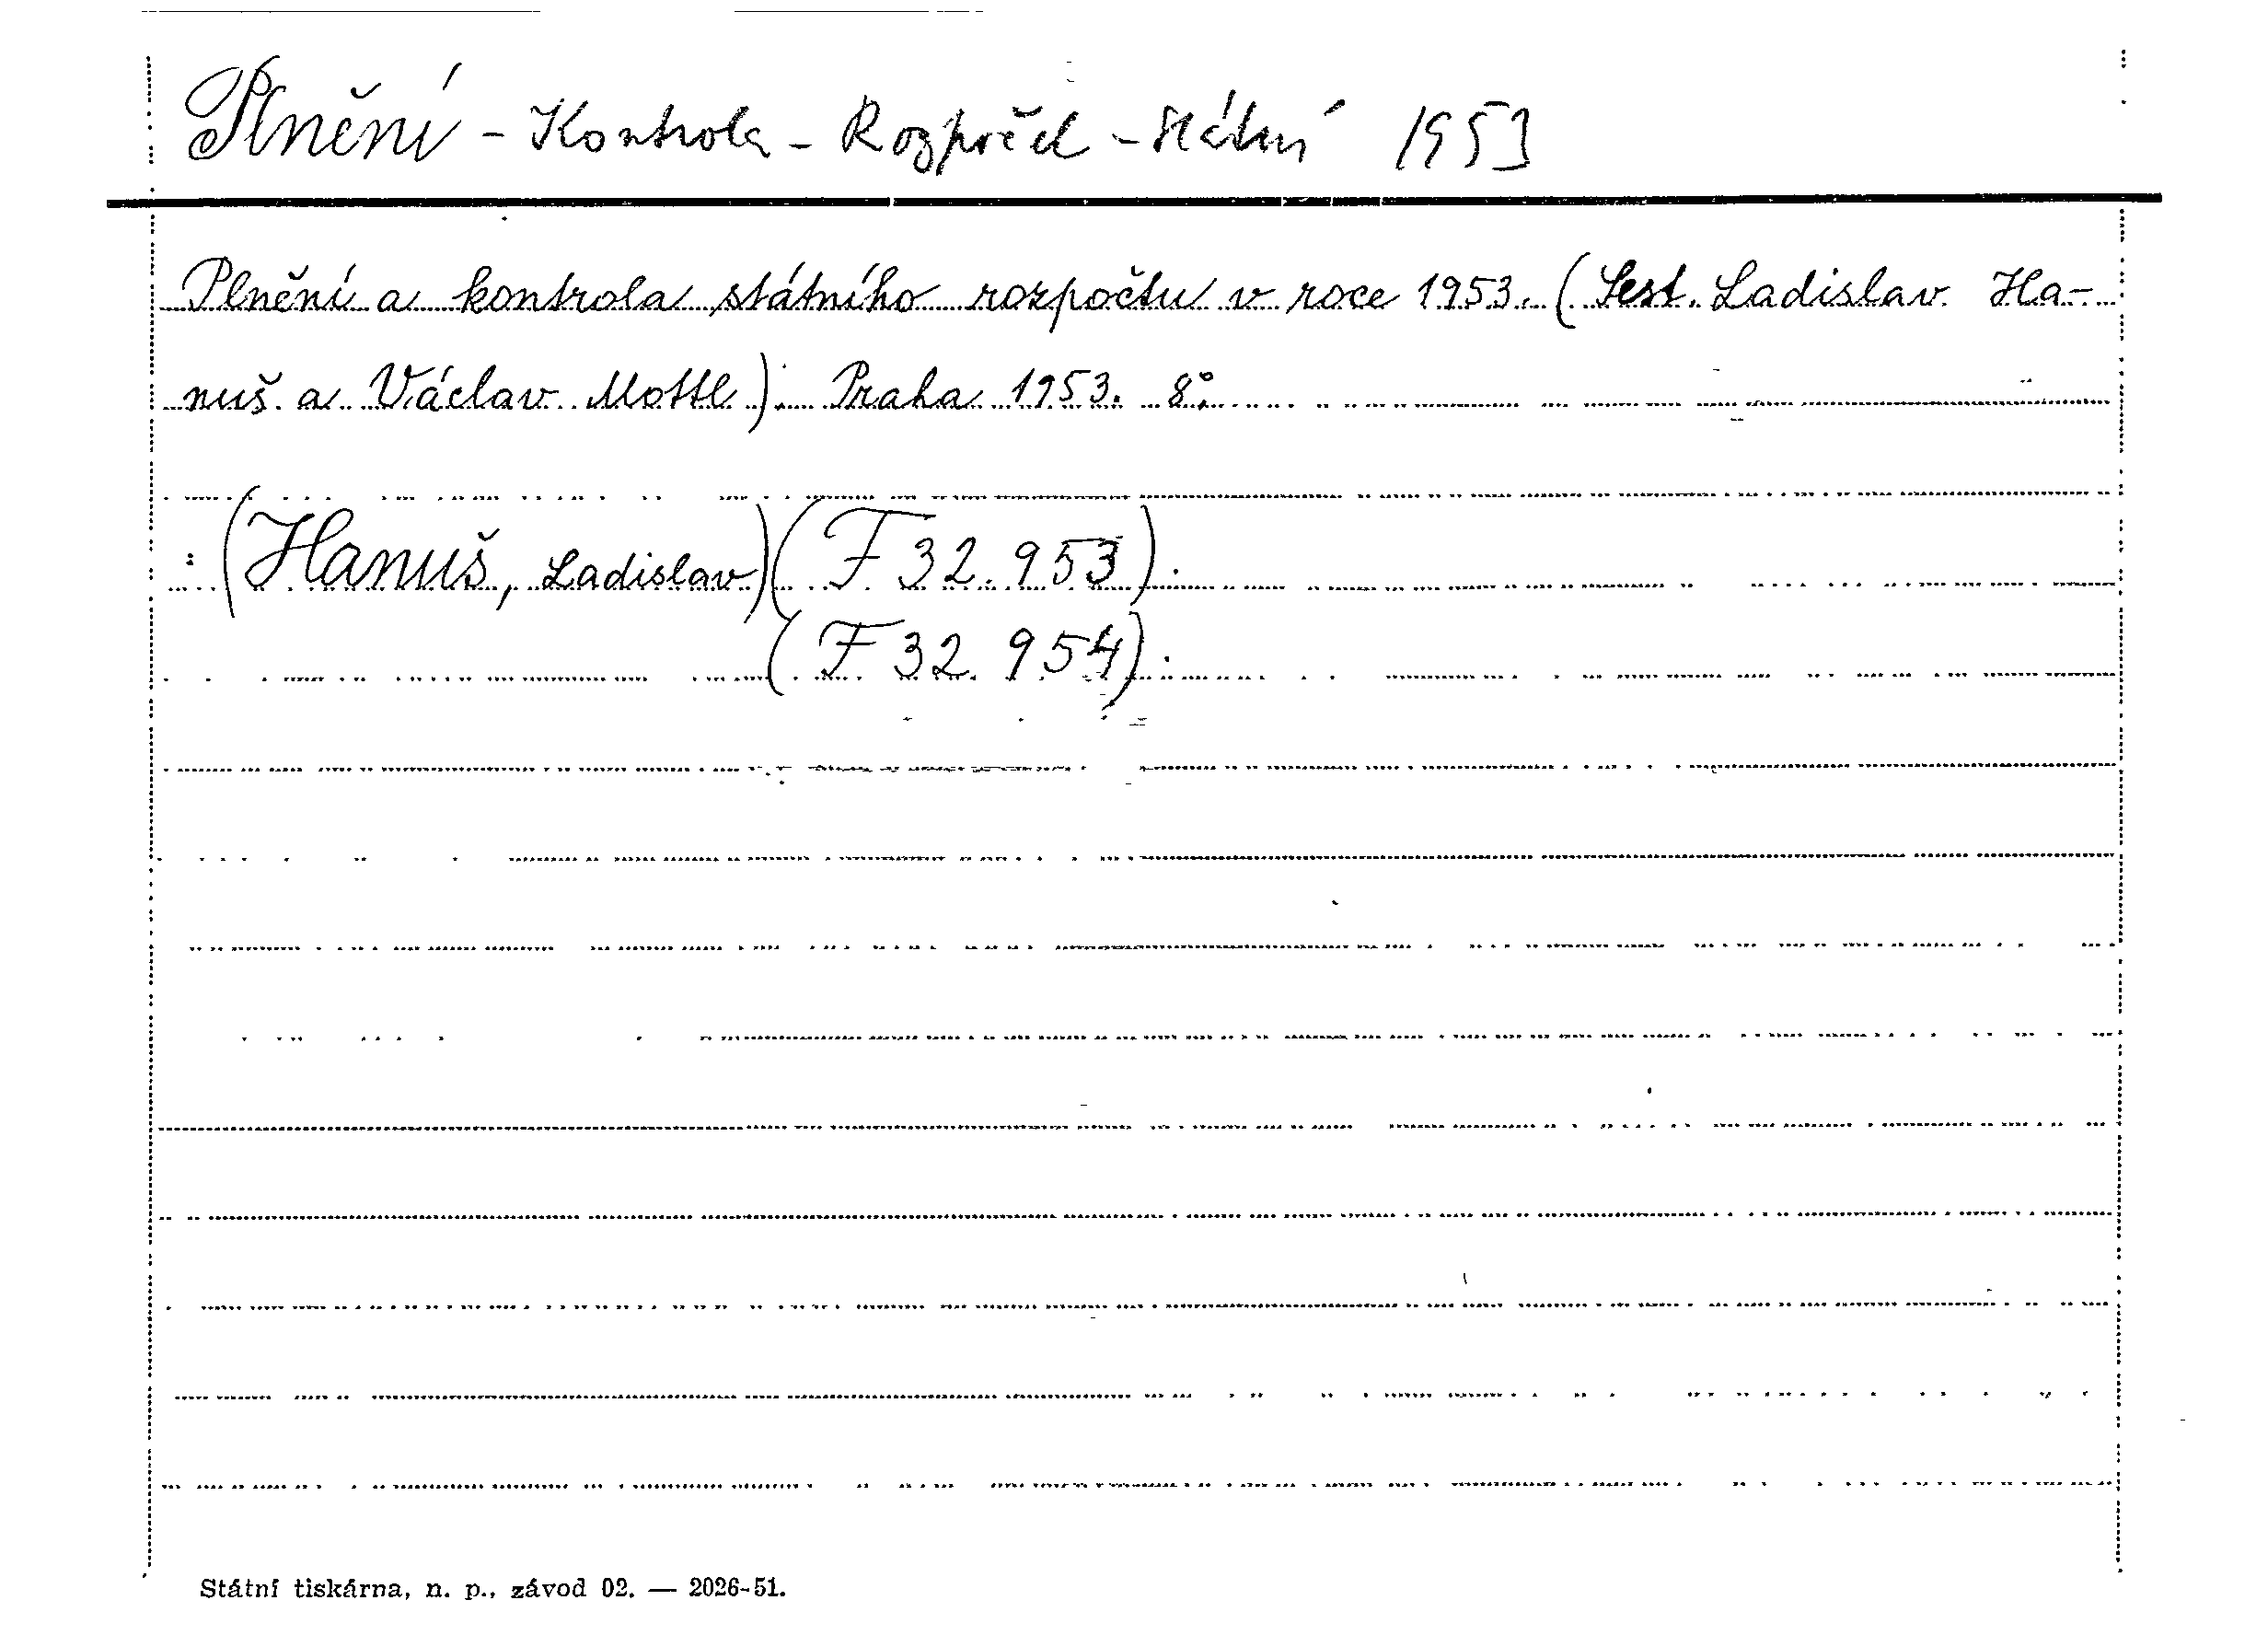 Plnění - Kontrola - Rozpočet - státní 1953
Plnění a kontrola státního rozpočtu v roce 1953. (Sest. Ladislav Ha-
nuš a Václav Mottl). Praha 1953. 8°.
: (Hanuš, Ladislav) (F 32.953).
(F 32.954).
Státní tiskárna, n. p., závod 02. — 2026-51.